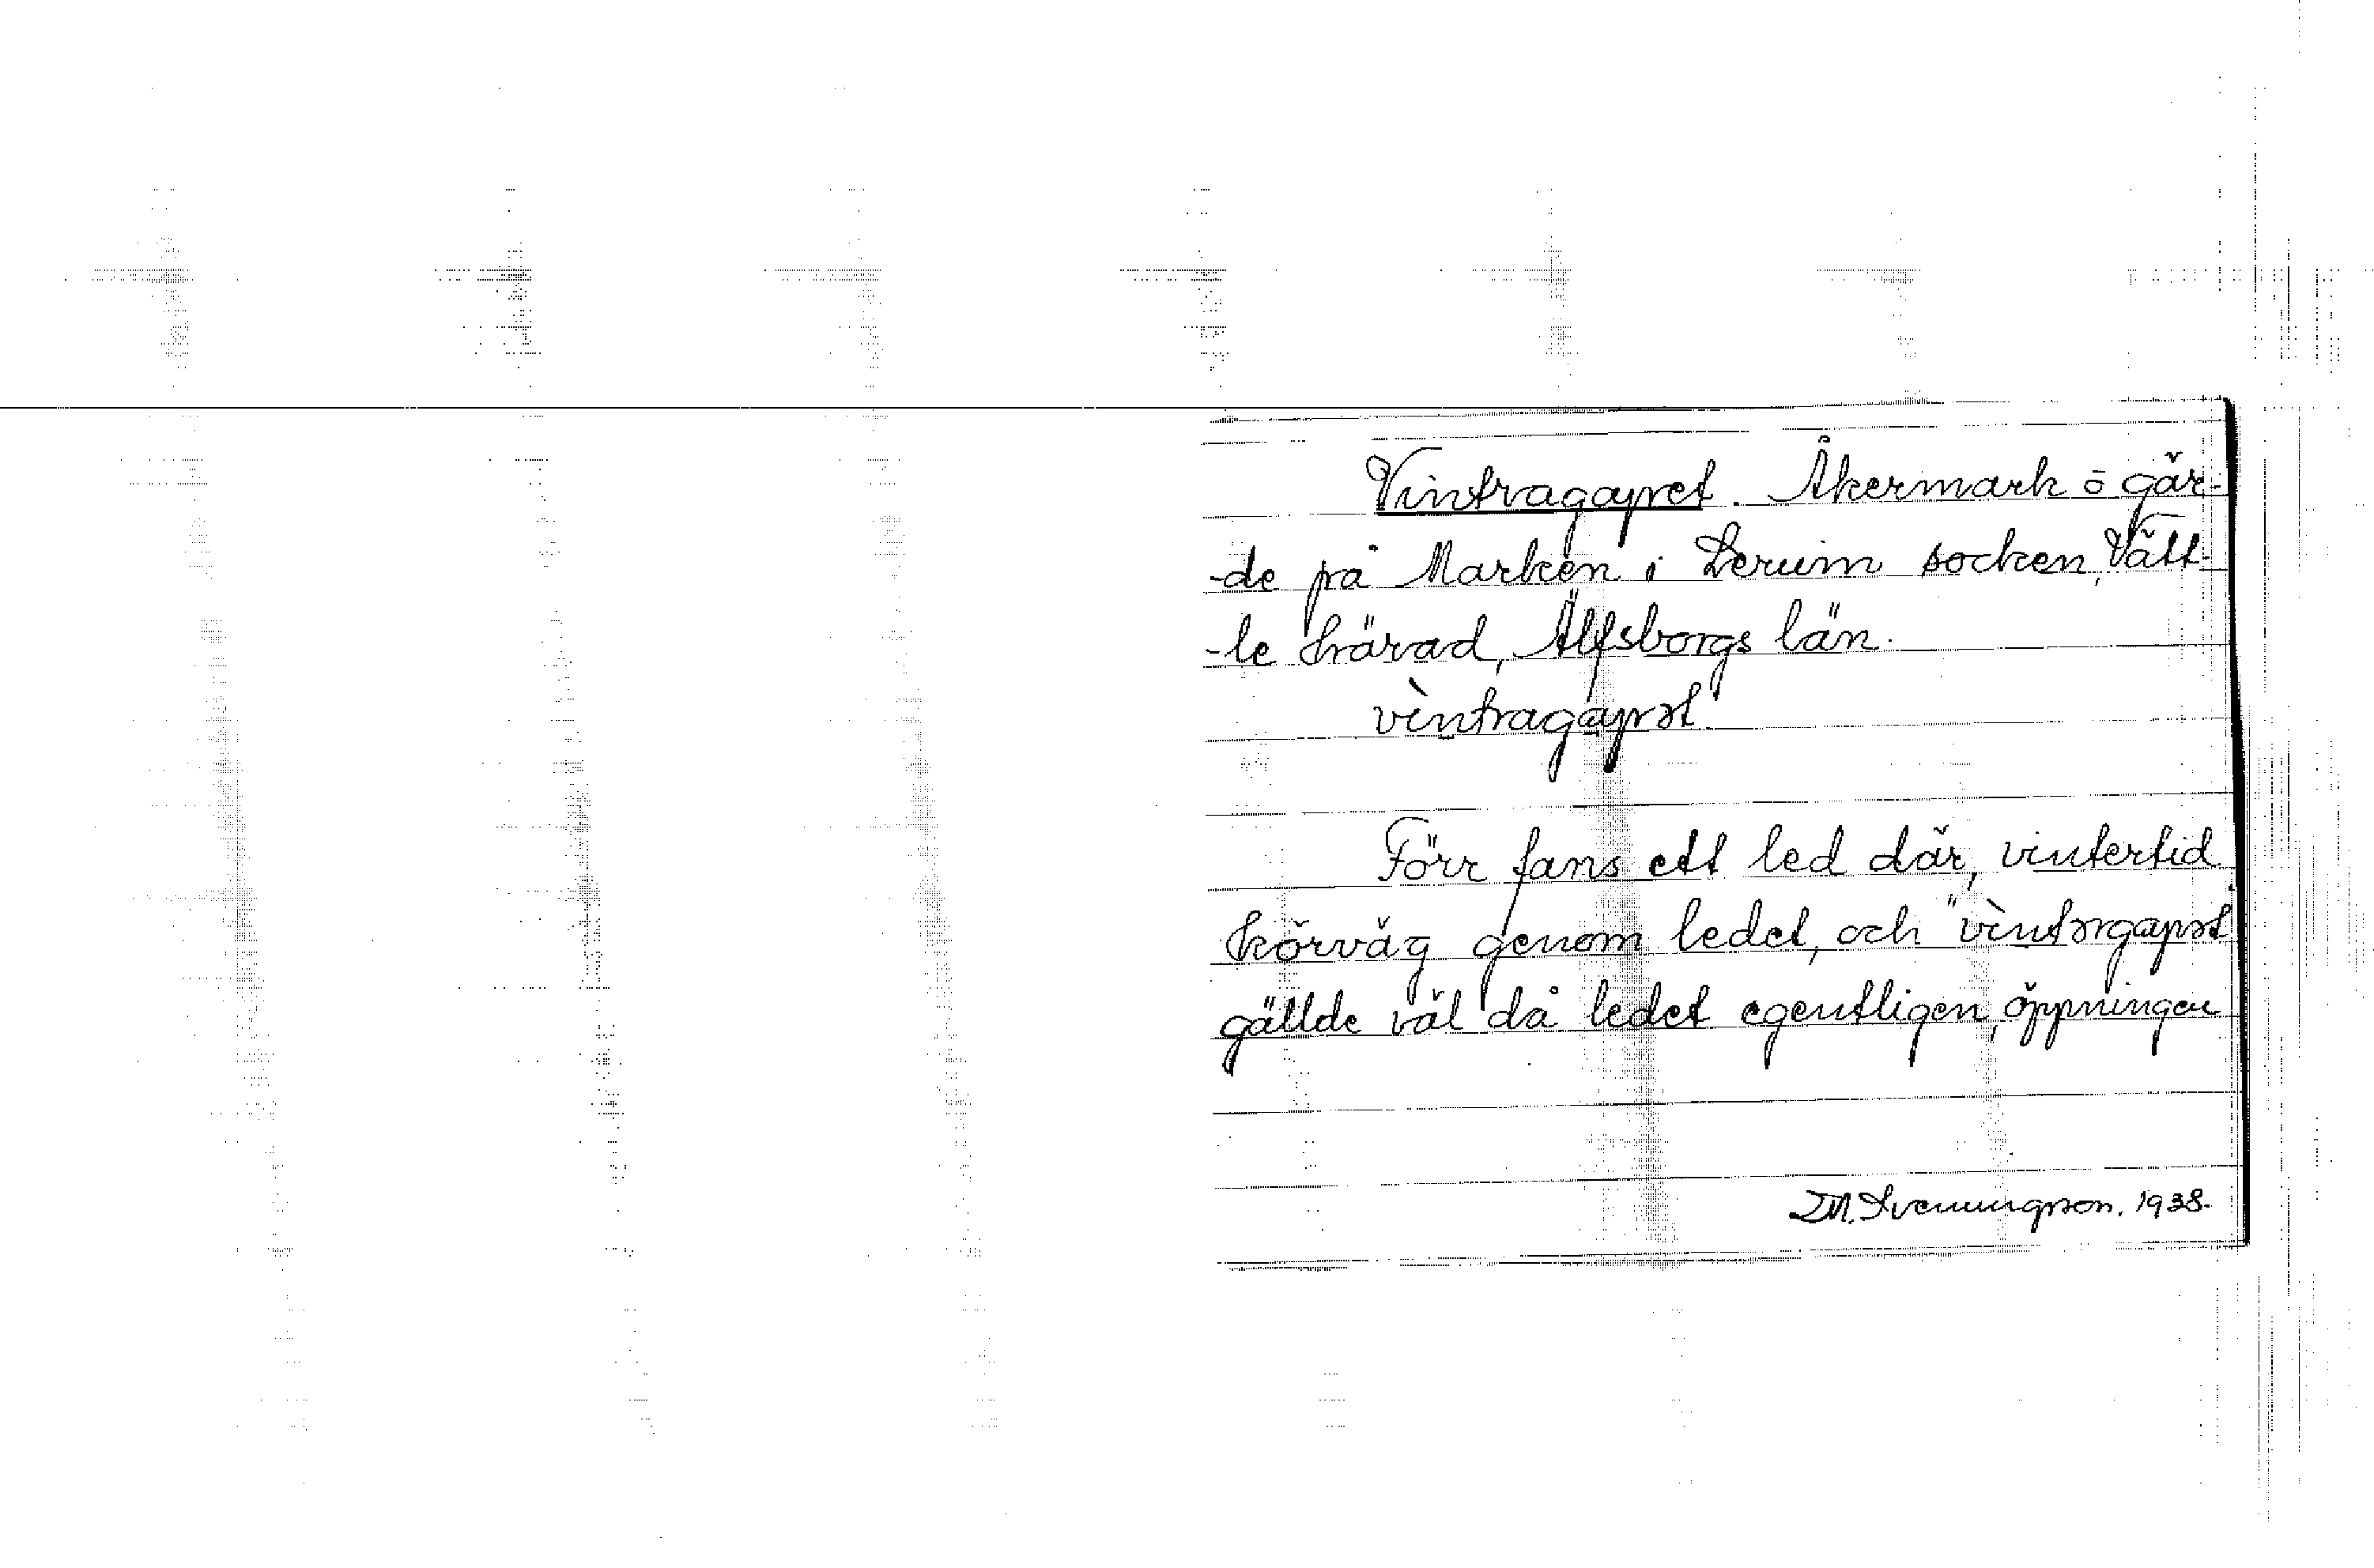 Vintragapet. Åkermark ō gär-
-de på Marken i Lerum socken, Vätt-
-le härad, Älfsborgs län.
vìntragapət
Förr fans ett led där, vintertid
körväg genom ledet, och "vìntərgapət
gällde väl då ledet egentligen, öppningen
Svenningson. 1938.